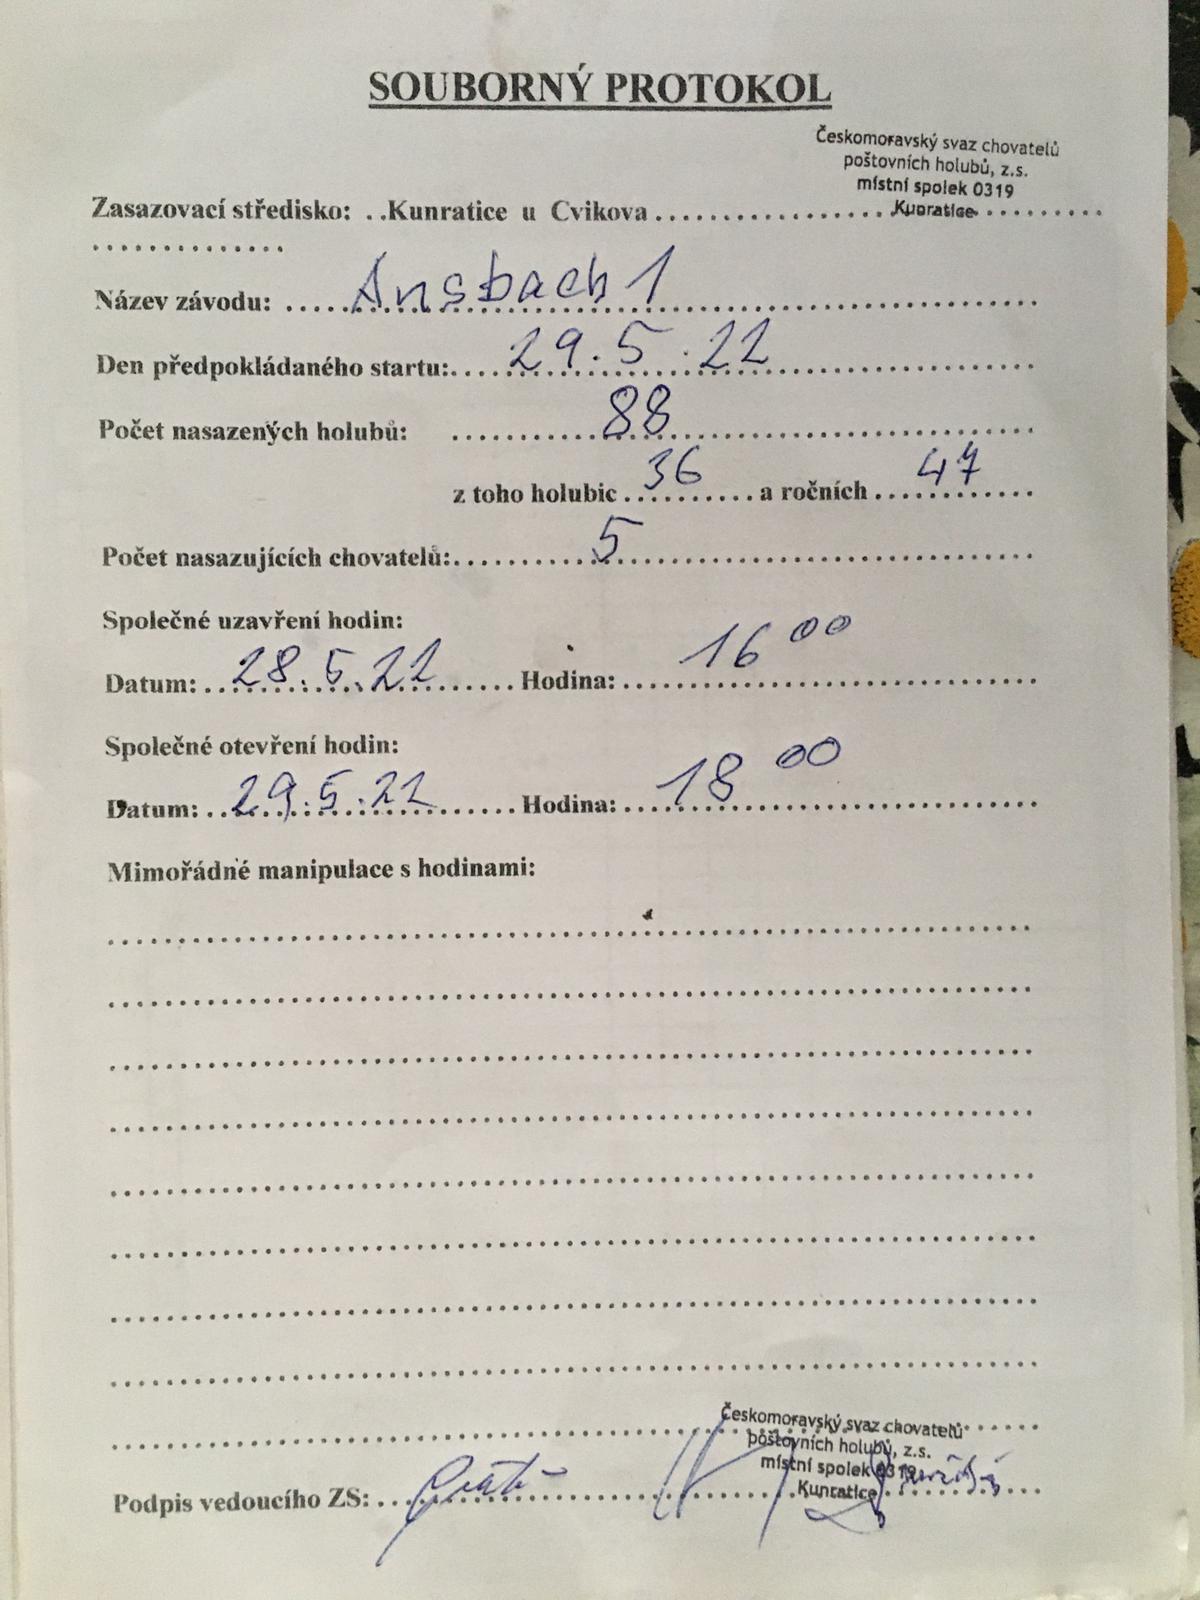 SOUBORNÝ PROTOKOL
Českomoravský svaz chovatelů
poštovních holubů, z.s.
místní spolek 0319
Kunratice
Zasazovací středisko: ..Kunratice u Cvikova
Název závodu: Ansbach 1
Den předpokládaného startu: 29.5.22
Počet nasazených holubů: 88
z toho holubic 36 a ročních 47
Počet nasazujících chovatelů: 5
Společné uzavření hodin:
Datum: 28.5.22 Hodina: 16 00
Společné otevření hodin:
Datum: 29.5.22 Hodina: 18 00
Mimořádné manipulace s hodinami:
Českomoravský svaz chovatelů
poštovních holubů, z.s.
místní spolek 0319
Kunratice
Podpis vedoucího ZS: